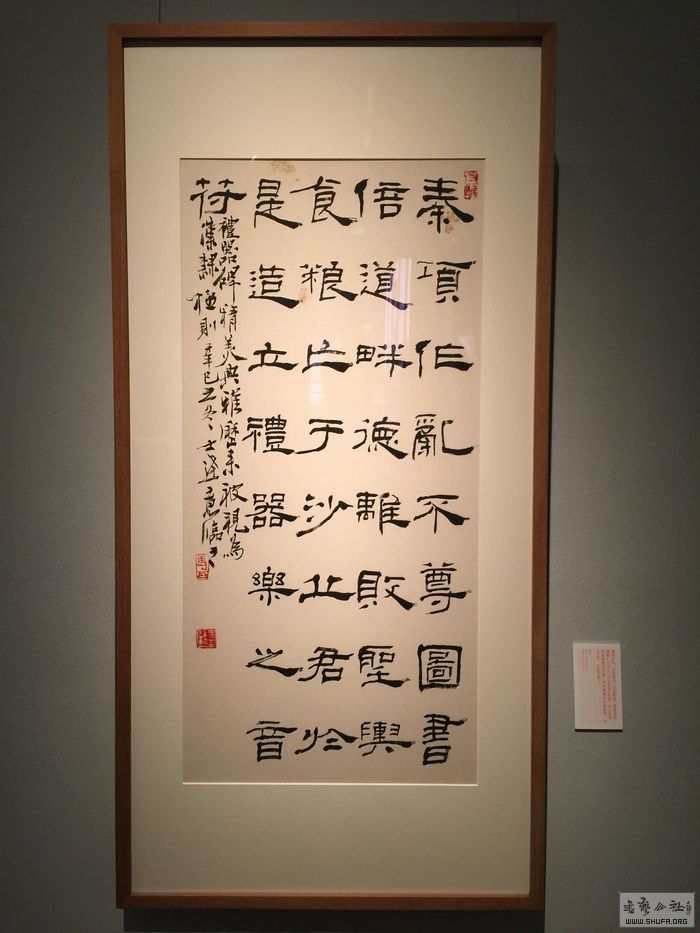 秦項作亂不尊圖書
倍道畔德離敗聖輿
食糧亡于沙丘君於
是造立禮器樂之音
苻
禮器碑精美典雅歷來被視為
漢隸極則辛巳之冬士達意臨
書藝公社
WWW.SHUFA.ORG